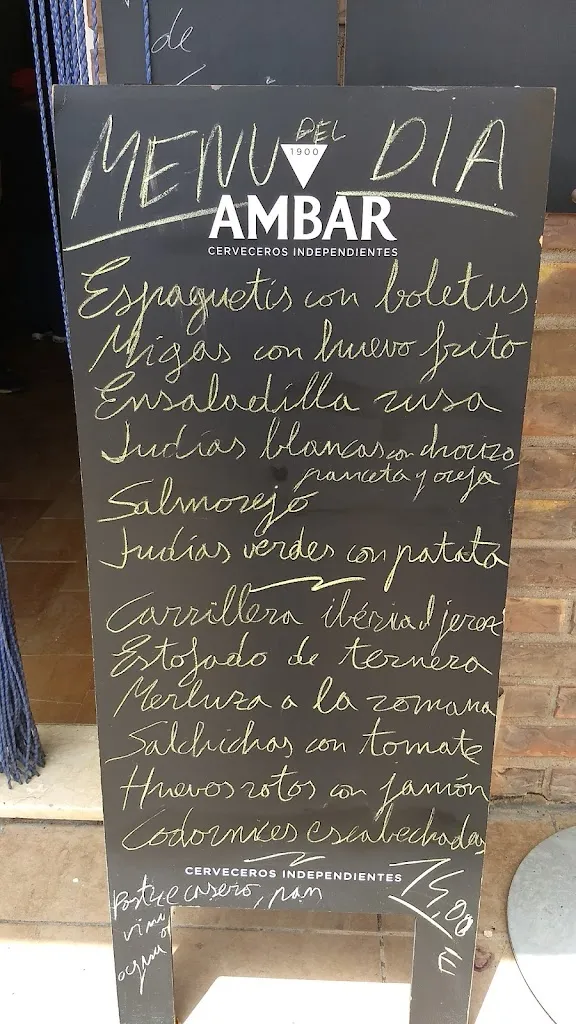 de
MENU DEL DIA
1900
AMBAR
CERVECEROS INDEPENDIENTES
Espaguetis con boletus
Migas con huevo frito
Ensaladilla rusa
Judías blancas con chorizo,
panceta y oreja
Salmorejo
Judías verdes con patata
Carrillera ibérica al jerez
Estofado de ternera
Merluza a la romana
Salchichas con tomate
Huevos rotos con jamón
Codornices escabechadas
CERVECEROS INDEPENDIENTES
Postre casero, pan
vino o
agua